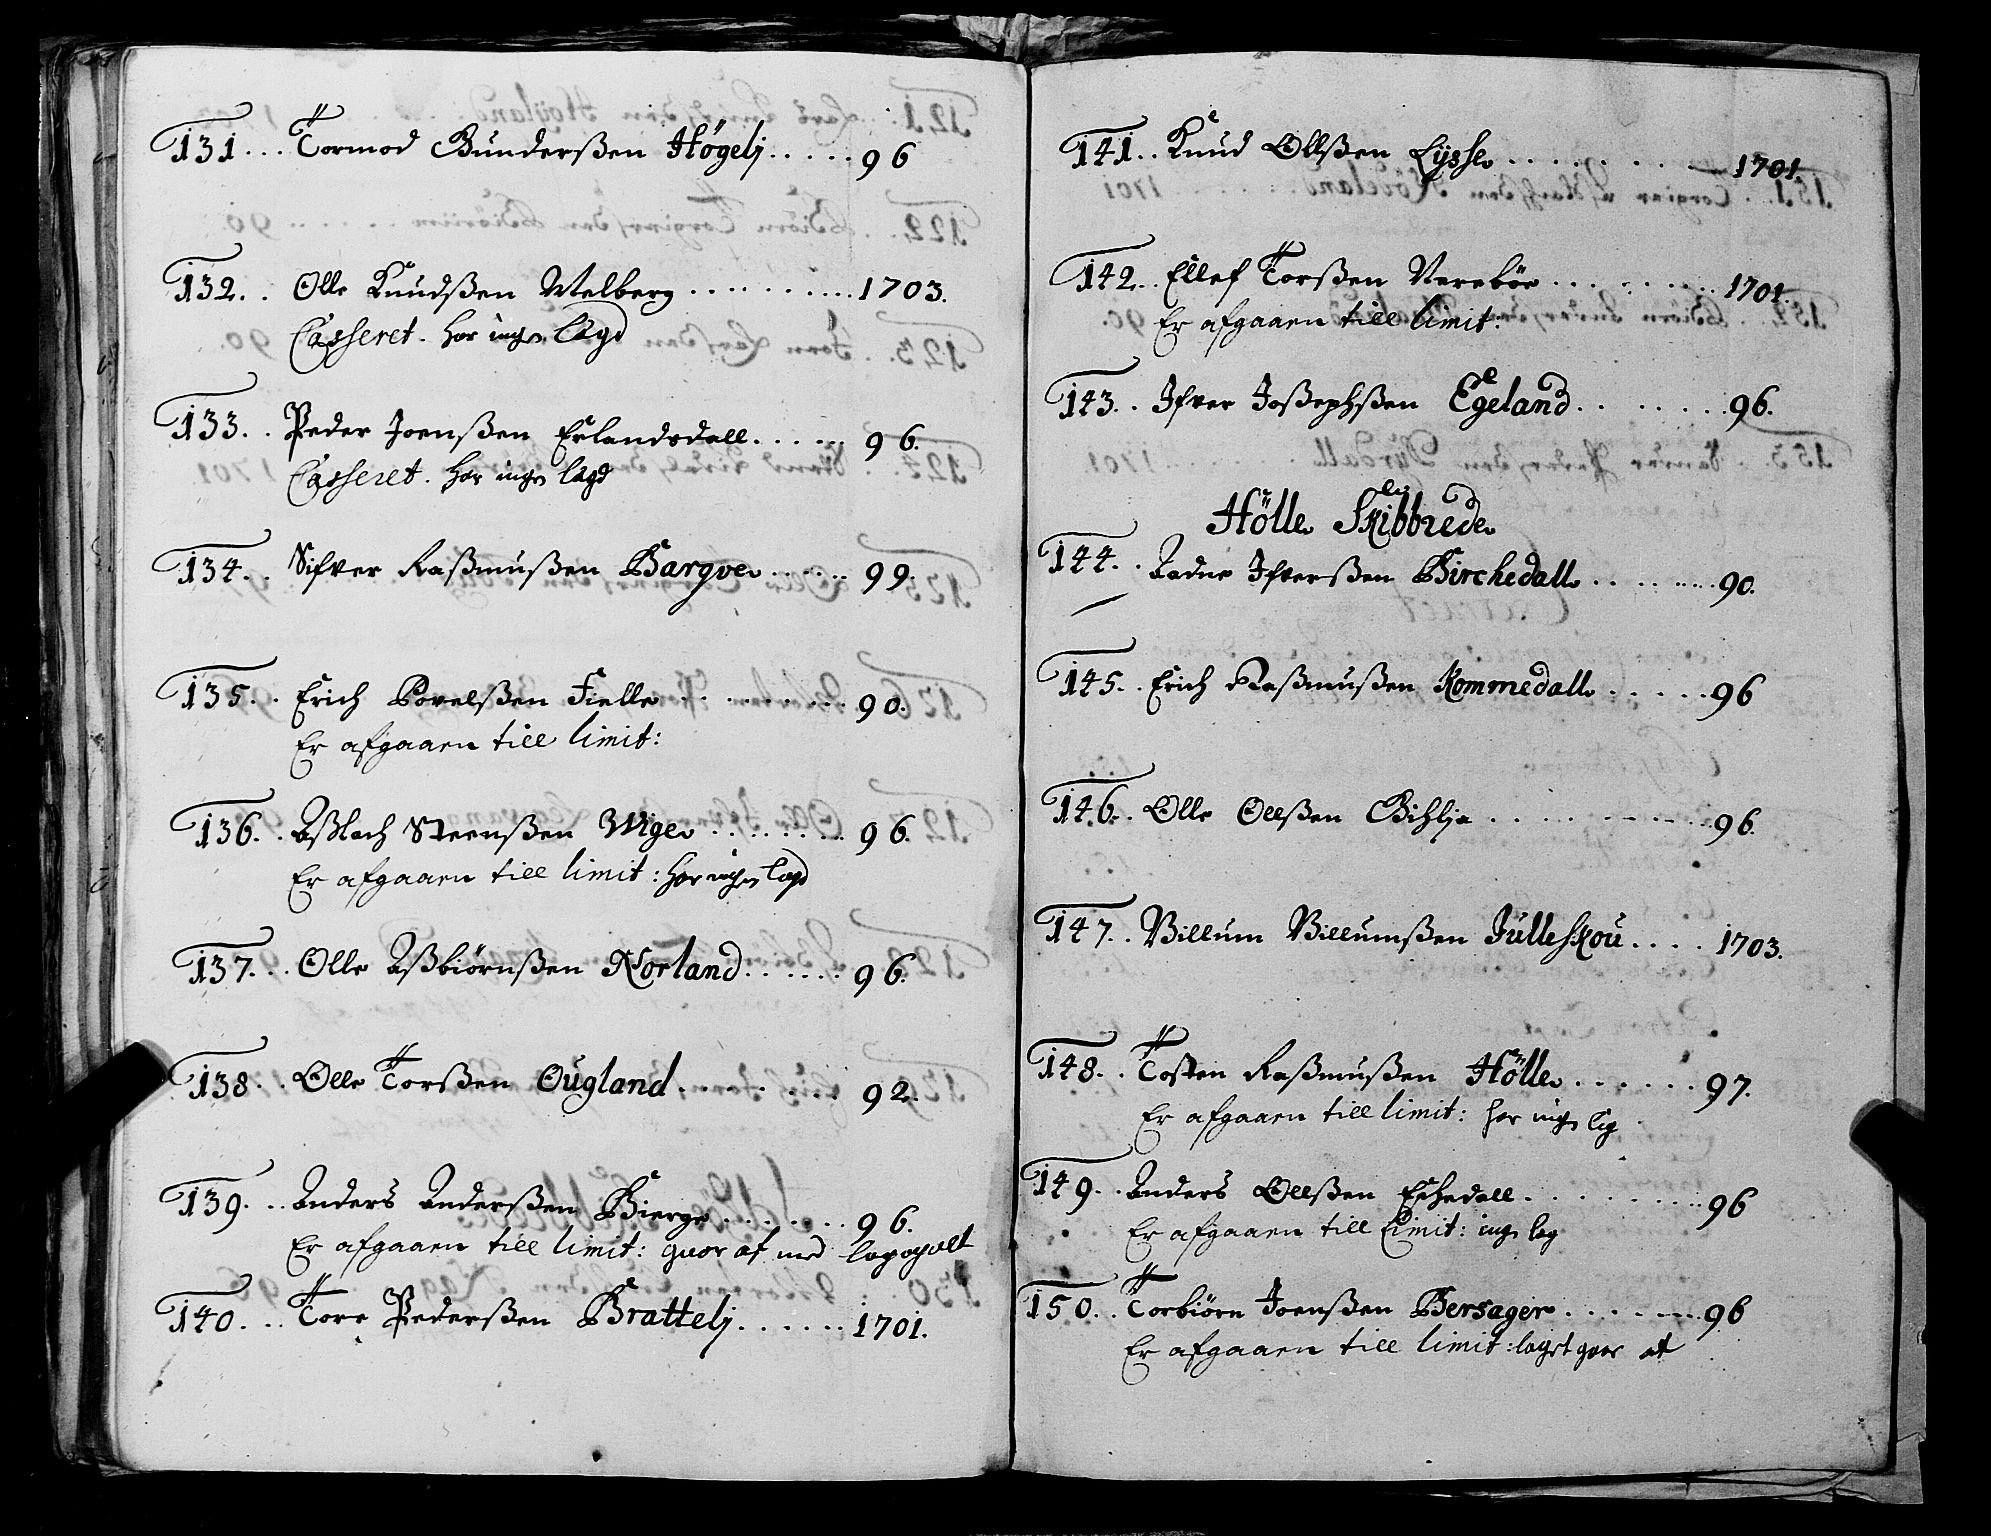 131... Tormod Gunderßen Høgelj..... 96
132.. Olle Knudßen Melberg .......... 1703.
Casseret. har ingen lagd
133.. Peder Joenßen Erlandsdall...... 96.
Casseret. har ingen lagd
134.. Sifver Raßmußen Bargve ...... 99.
135.. Erich Povelßen Fielle .......... 90.
Er afgaaen till limit:
136.. Aßlach Steenßen Wige ........ 96.
Er afgaaen till limit: har ingen lagd
137... Olle Aßbiørnßen Norland...... 96.
138... Olle Torßen Ougland........ 92.
139... Anders Anderßen Bierge ........ 96.
Er afgaaen till limit: af med
140... Tore Pederßen Brattelj...... 1701.
141.. Knud Ollßen Lysse .......... 1701.
142... Ellef Torßen Narebøe .......... 1701.
Er afgaaen till limit:
143.. Ifver Joßephßen Egeland........ 96.
Hölle Skibbrede
144.. Aadne Ifverßen Birchedall ........ 90.
145.. Erich Raßmußen Kommedall ..... 96
146.. Olle Ollßen Bihlja .......... 96.
147.. Villum Villumßen Julleskou.... 1703.
148.. Tosten Raßmußen Hölle ...... 97.
Er afgaaen till limit: har ingen
149.. Anders Ollßen Eshedall ......... 96
Er afgaaen till Limit: ingen
150.. Torbiørn Joenßen Bersager ....... 96
Er afgaaen till limit: